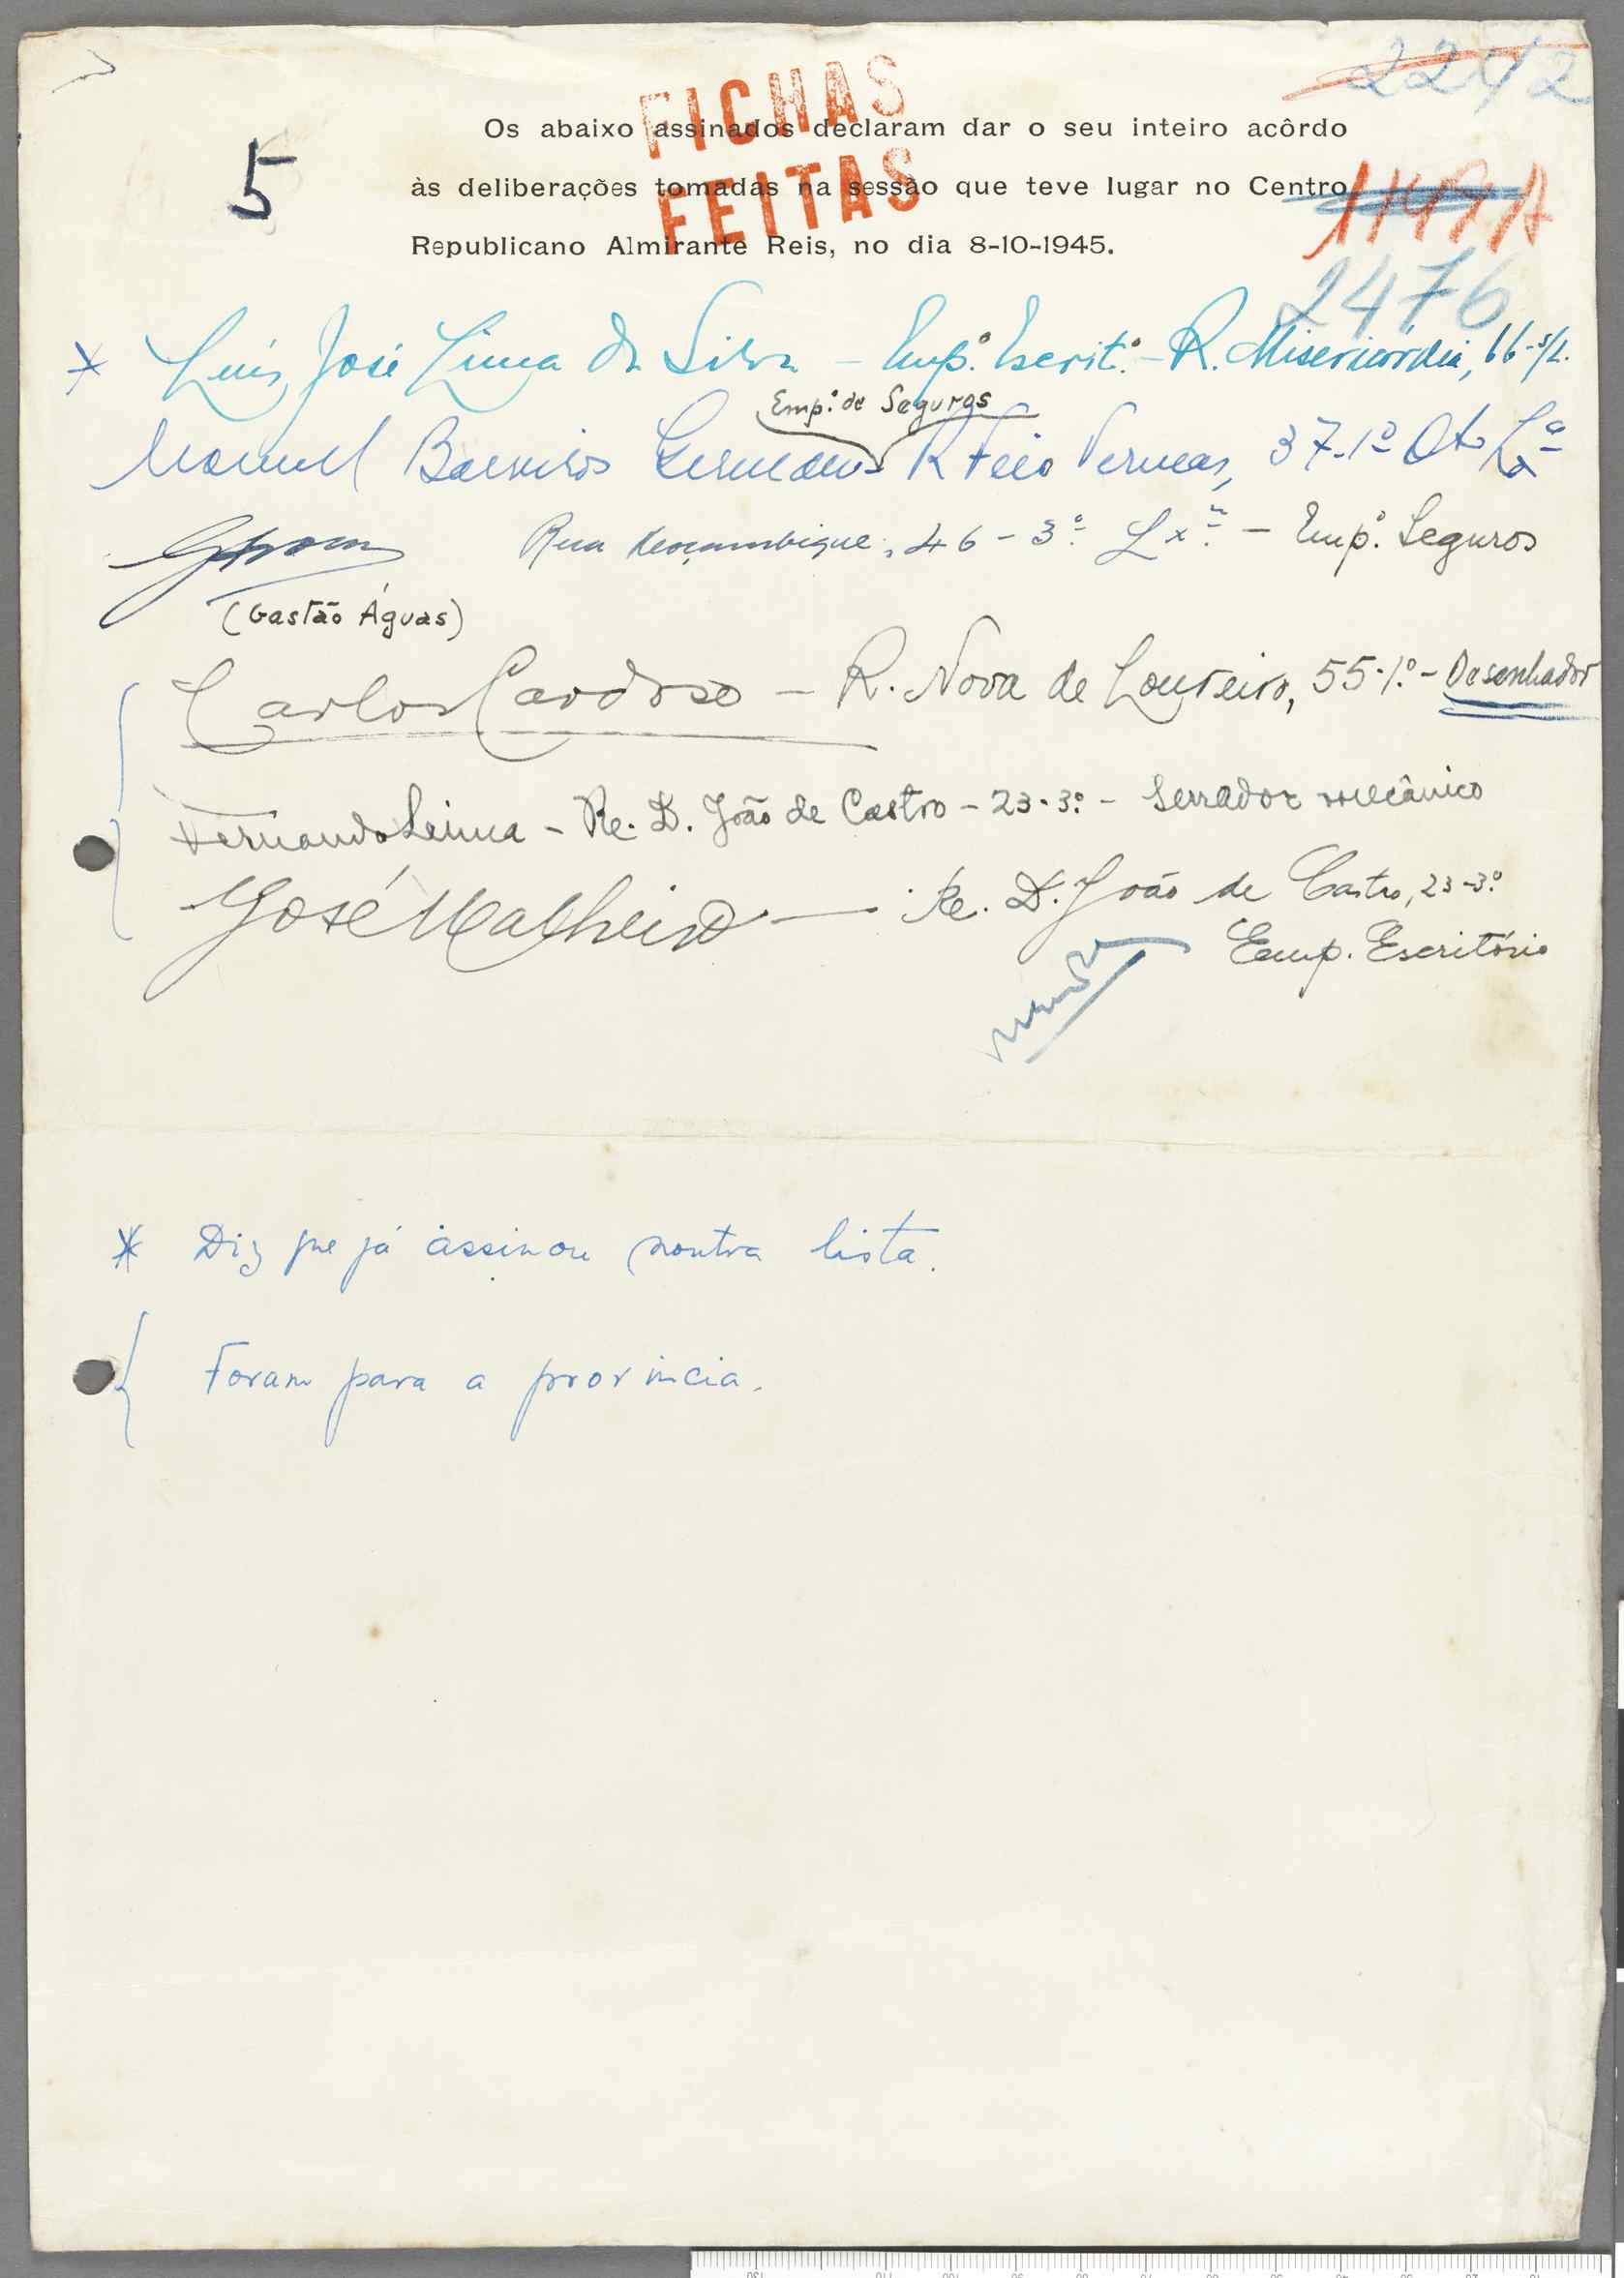 2242
FICHAS
FEITAS
5
Os abaixo assinados declaram dar o seu inteiro acôrdo
às deliberações tomadas na sessão que teve lugar no Centro
Republicano Almirante Reis, no dia 8-10-1945.
2476
* Luís José Lima da Silva – Emp.º Escrit.º – R. Misericórdia, 66-s/L.
Emp.º de Seguros
Manuel R Feio Terenas, 37-1º Dto Lxª
Rua Moçambique, 46-3º Lxª – Emp.º Seguros
(Gastão Águas)
Carlos Cardoso – R. Nova de Loureiro, 55-1.º – Desenhador
Fernando Lima – R. D. João de Castro – 23-3.º – Serrador mecânico
José Malheiro — R. D. João de Castro, 23-3.º
Emp. Escritório
* Diz que já assinou noutra lista.
{ Foram para a provincia.